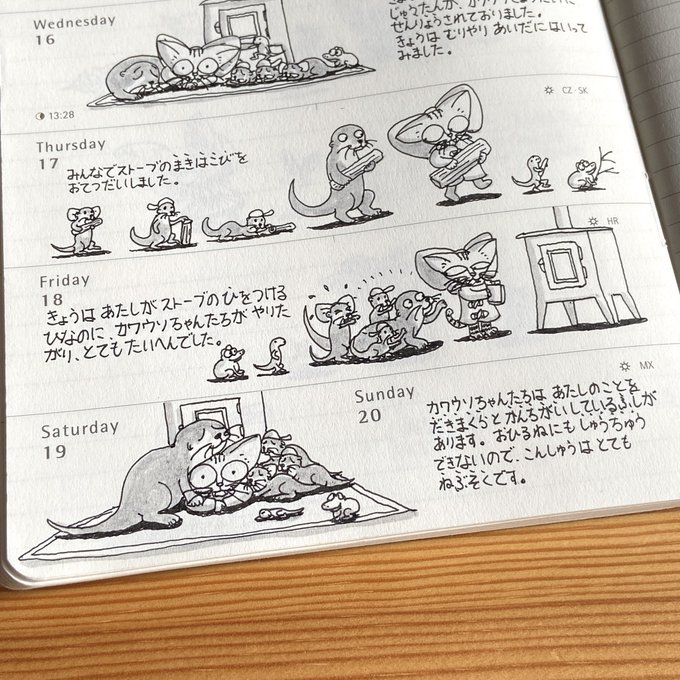 Wednesday
16
じゅうたんが、
せんりょうされておりました。
きょうは むりやり あいだにはいって
みました。
13:28
CZ·SK
Thursday
17
みんなでストーブのまきはこびを
おてつだいしました。
HR
Friday
18
きょうは あたしが ストーブの ひをつける
ひなのに、カワウソちゃんたちが やりた
がり、とても たいへんでした。
MX
Saturday
19
Sunday
20
カワウソちゃんたちは あたしのことを
だきまくらと かんちがいしているふしが
あります。おひるねにも しゅうちゅう
できないので、こんしゅうは とても
ねぶそくです。